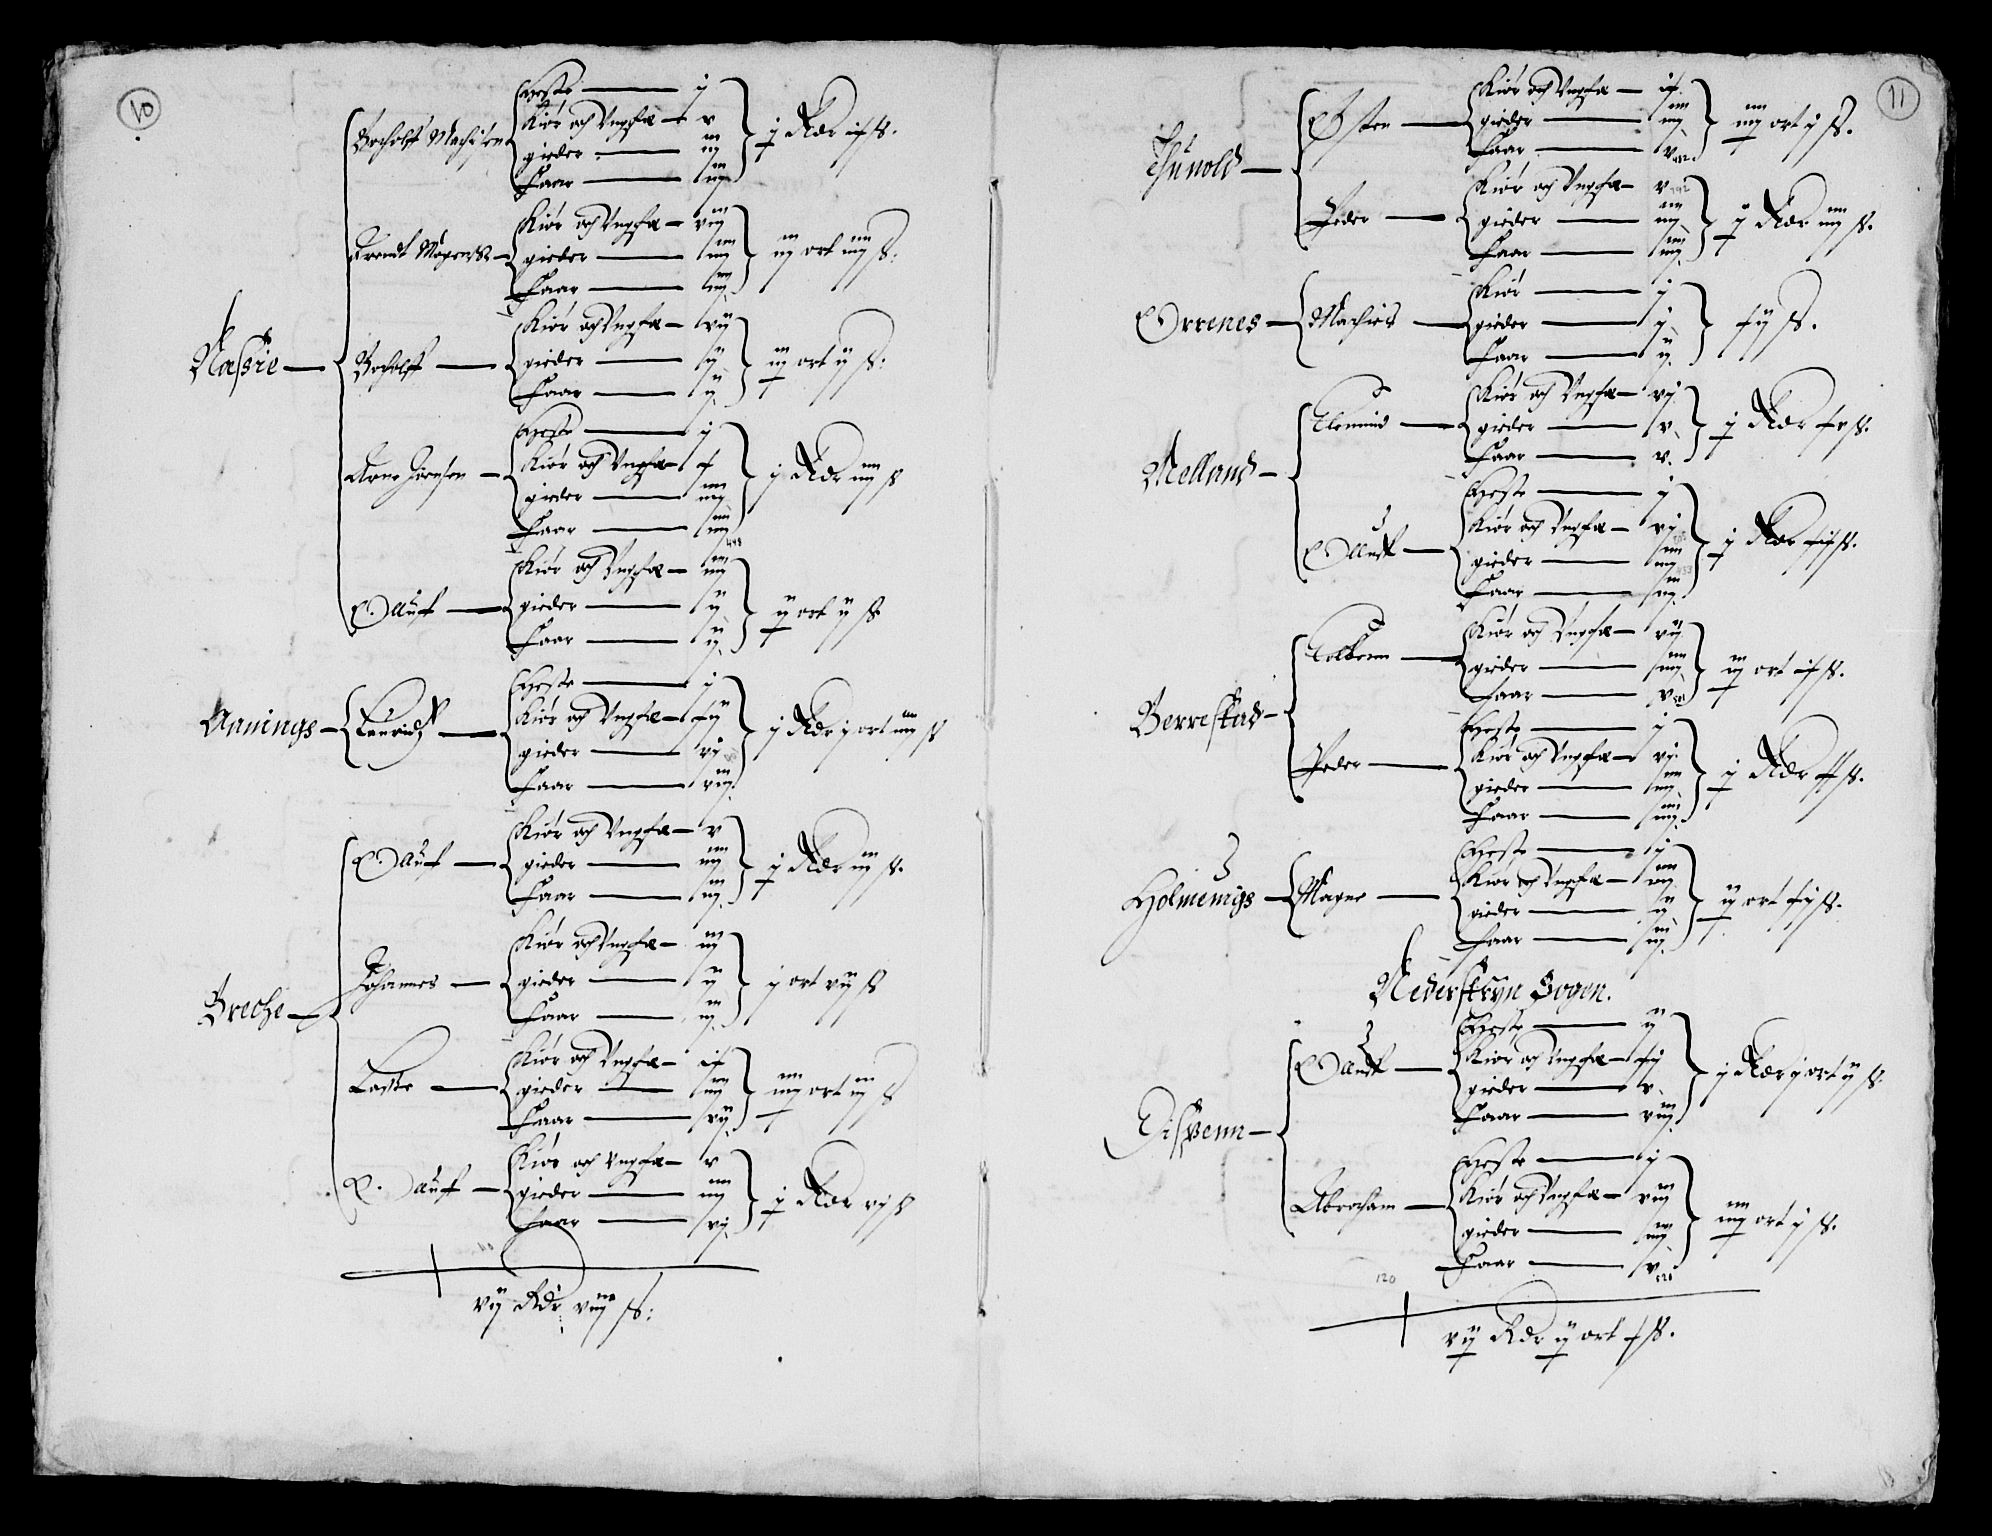 10
Nassie — Botholff Machisen
Heste — j
Kiør och Vngfæ — v
gieder — iiij
Faar — iiij
j Rdr if ß.
Arendt Mogenss —
Kiør och Vngfæ — viij
gieder — iiij
Faar — iiij
iij ort iiij ß:
Botholff —
Kiør och Vngfæ — vij
gieder — ij
Faar — ij
iij ort ij ß:
Arne Joensen —
Heste — j
Kiør och Vngfæ — f
gieder — iiij
Faar — iiij
j Rdr iiij ß
Oluff —
Kiør och Vngfæ — iiij
gieder — ij
Faar — ij
ij ort ij ß
Annings — Lauridtz —
Heste — j
Kiør och Vngfæ — fij
gieder — vj
Faar — viij
j Rdr j ort iiij ß
Breche — Oluff —
Kiør och Vngfæ — v
gieder — iiij
Faar — iij
j Rdr iij ß.
Johannes —
Kiør och Vngfæ — iij
gieder — ij
Faar — iij
j ort vij ß
Lasse —
Kiør och Vngfæ — if
gieder — iij
Faar — vij
iiij ort iij ß
Oluff —
Kiør och Vngfæ — v
gieder — iiij
Faar — vj
j Rdr vj ß
vij Rdr viij ß:
11
Thunold — Østen —
Kiør och Vngfæ — if
gieder — iiij
Faar — v
iiij ort j ß.
Peder —
Kiør och Vngfæ — v
gieder — iiij
Faar — iiij
j Rdr iiij ß.
Orrenes — Machies —
Kiør — j
gieder — j
Faar — ij
fij ß.
Melland —
Kiør och Vngfæ — vj
gieder — v
Faar — v.
j Rdr fv ß.
Oluff —
Heste — j
Kiør och Vngfæ — vj
gieder — iiij
Faar — iij
j Rdr fif ß.
Berrestad —
Kiør och Vngfæ — vij
gieder — iiij
Faar — v
iij ort if ß.
Peder —
Heste — j
Kiør och Vngfæ — vj
gieder — iiij
Faar — iiij
j Rdr ff ß.
Holmenigs — Magne —
Heste — j
Kiør och Vngfæ — iiij
gieder — ij
Faar — iij
ij ort fij ß.
Nederstryn Sogen.
Tisvenn — Oluff —
Heste — ij
Kiør och Vngfæ — fij
gieder — v
Faar — viij
j Rdr j ort ij ß.
Abraham —
Heste — j
Kiør och Vngfæ — viij
gieder — iij
Faar — v
iiij ort j ß.
120
121
vij Rdr ij ort f ß.